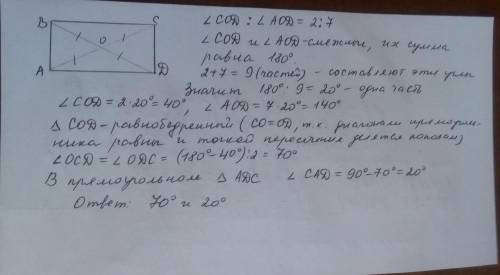 B C
O
A D
∠COD : ∠AOD = 2:7
∠COD и ∠AOD - смежные, их сумма
равна 180°.
2+7 = 9 (частей) - составляют эти углы
Значит 180° : 9 = 20° - одна часть
∠COD = 2·20° = 40°, ∠AOD = 7·20° = 140°
Δ COD - равнобедренный (CO=OD, т.к. диагонали прямоуголь-
ника равны и точкой пересечения делятся пополам)
∠OCD = ∠ODC = (180° - 40°):2 = 70°
В прямоугольном Δ ADC ∠CAD = 90° - 70° = 20°
Ответ: 70° и 20°